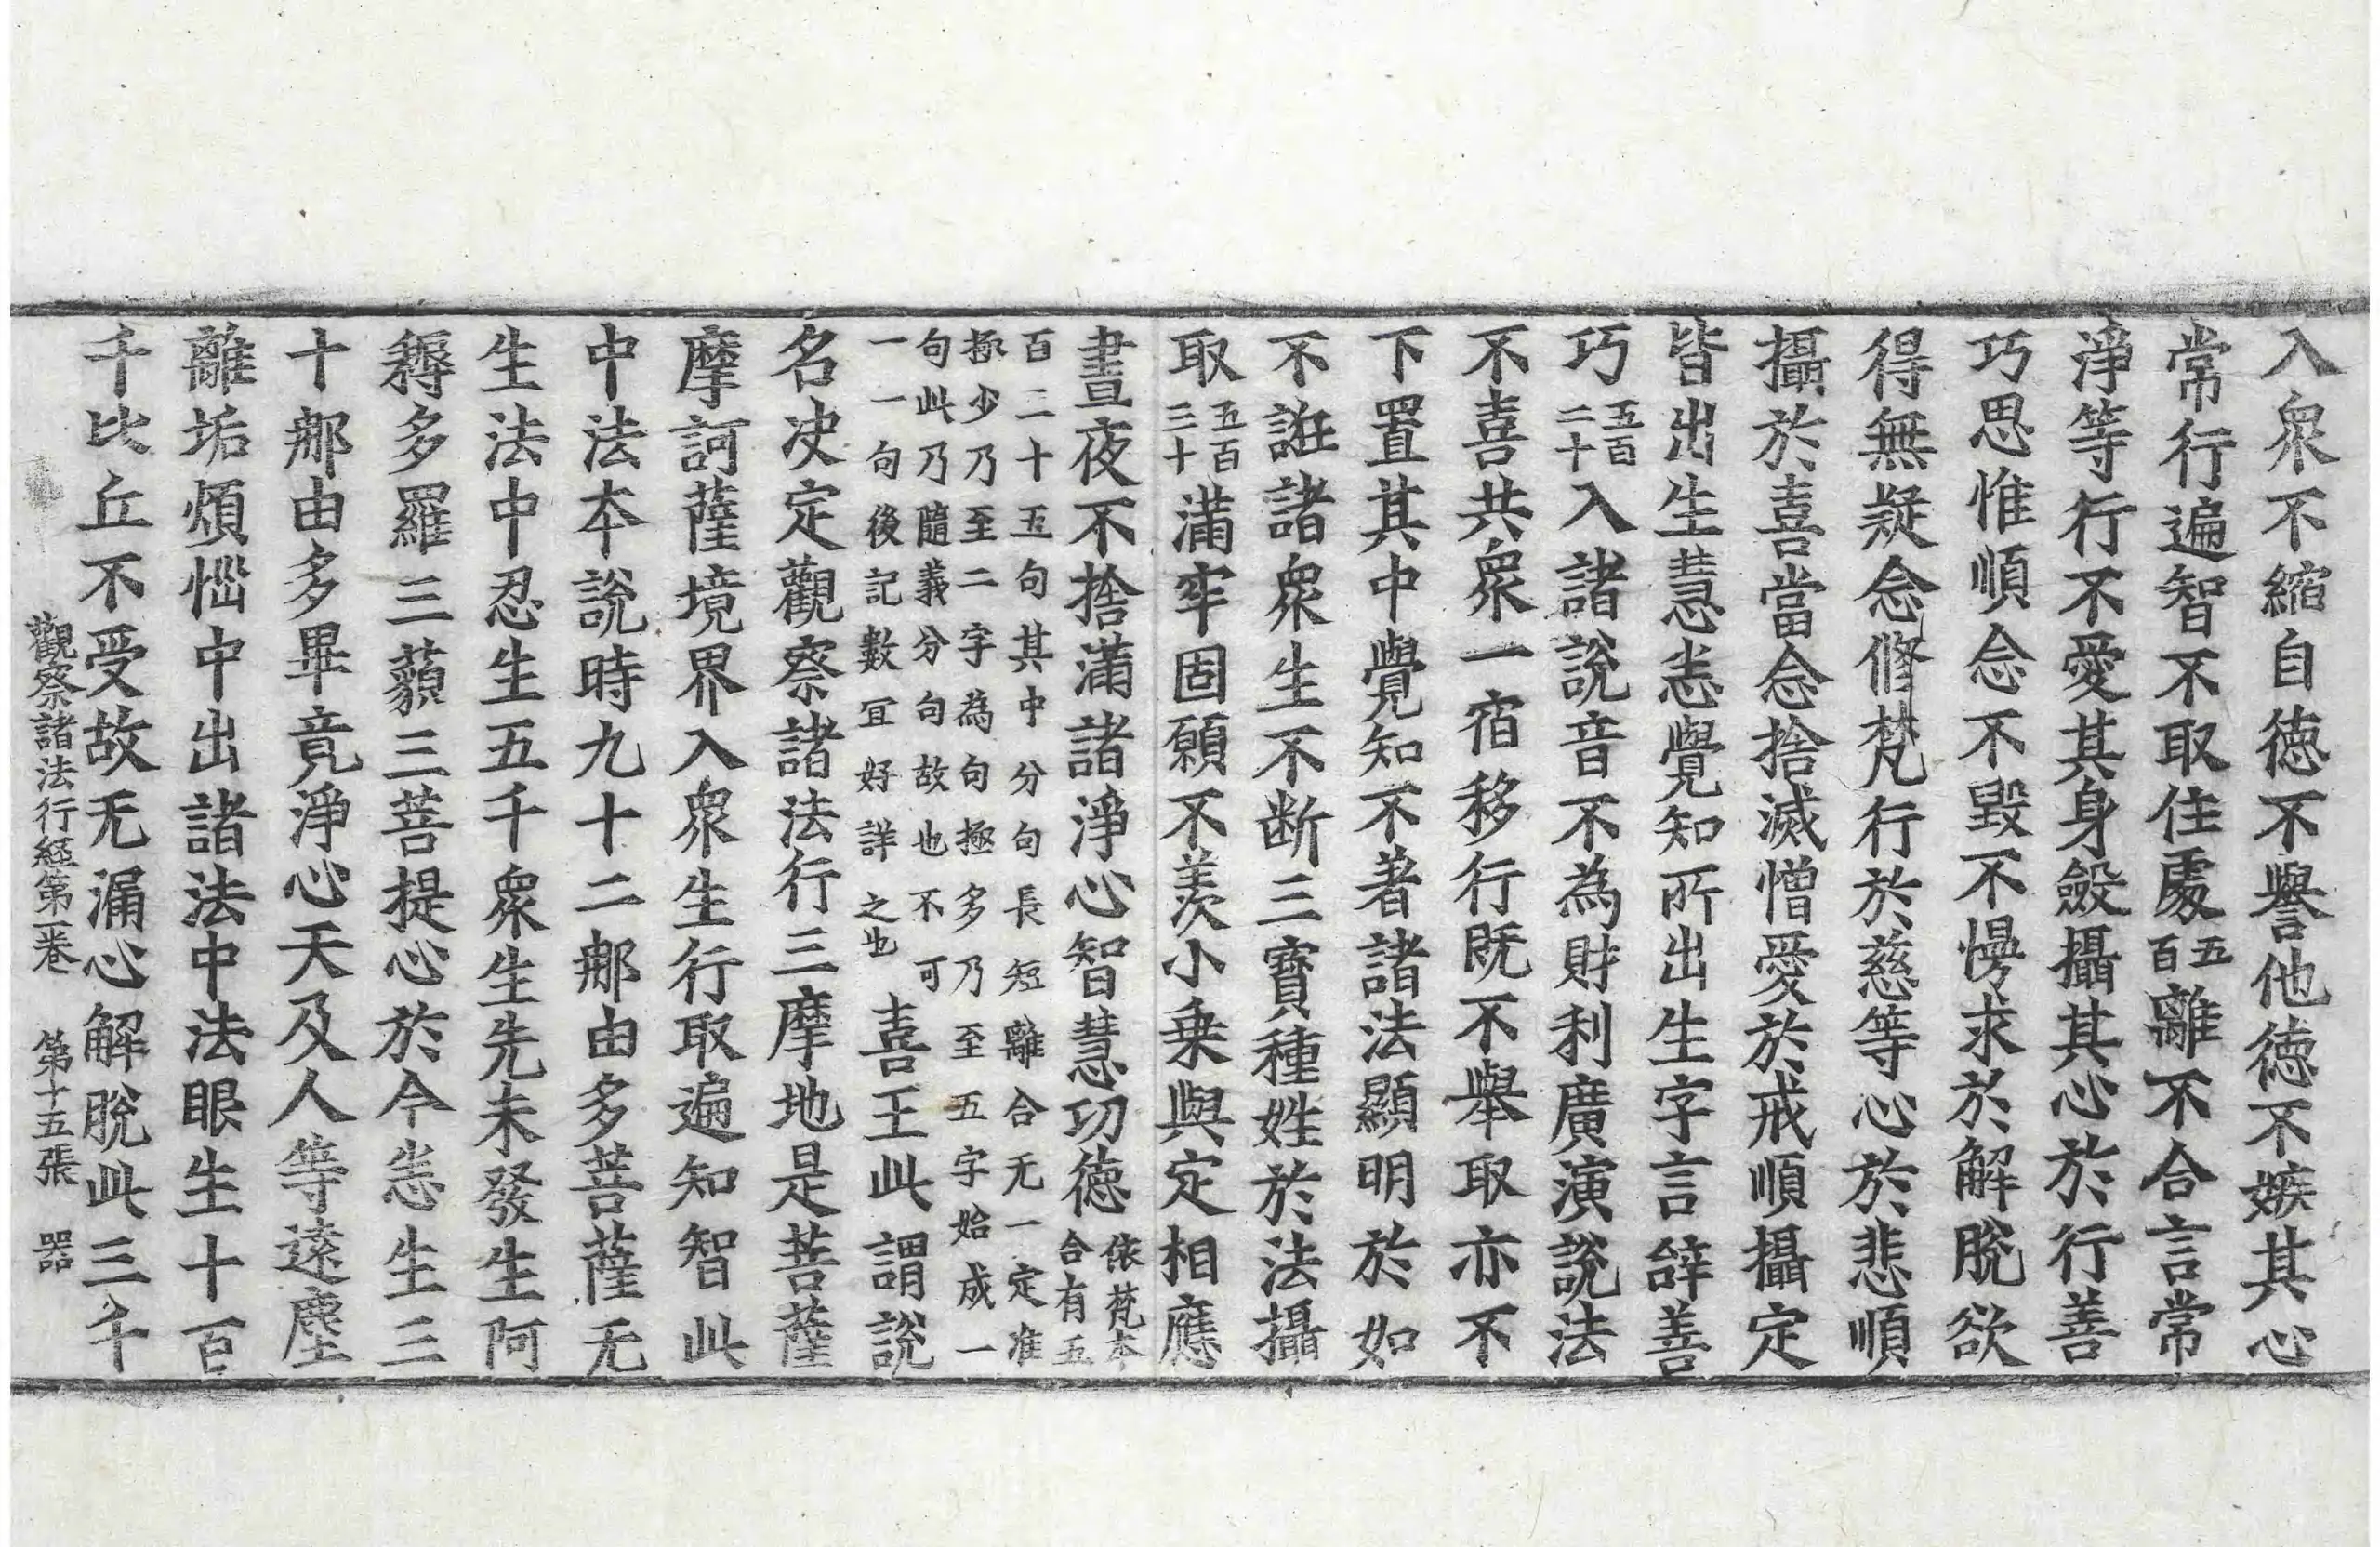 入衆不縮自徳不譽他徳不嫉其心
常行遍智不取住處五百離不合言常
淨等行不愛其身斂攝其心於行善
巧思惟順念不毀不慢求於解脫欲
得無疑念修梵行於慈等心於悲順
攝於喜當念捨滅憎愛於戒順攝定
皆出生慧恙覺知所出生字言辝善
巧五百二十入諸說音不為財利廣演說法
不喜共衆一宿移行既不舉取亦不
下置其中覺知不著諸法顯明於如
不誑諸衆生不断三寶種姓於法攝
取五百三十滿牢固願不羨小乗與定相應
晝夜不捨滿諸淨心智慧功徳依梵本合有五
百二十五句其中分句長短離合无一定准
極少乃至二字為句極多乃至五字始成一
句此乃隨義分句故也不可
一一句後記數冝好詳之也喜王此謂說
名决定觀察諸法行三摩地是菩薩
摩訶薩境界入衆生行取遍知智此
中法本說時九十二那由多菩薩无
生法中忍生五千衆生先未發生阿
耨多羅三藐三菩提心於今恙生三
十那由多畢竟淨心天及人等遠塵
離垢煩惱中出諸法中法眼生十百
千比丘不受故无漏心解脫此三千
觀察諸法行經第一卷 第十五張 器